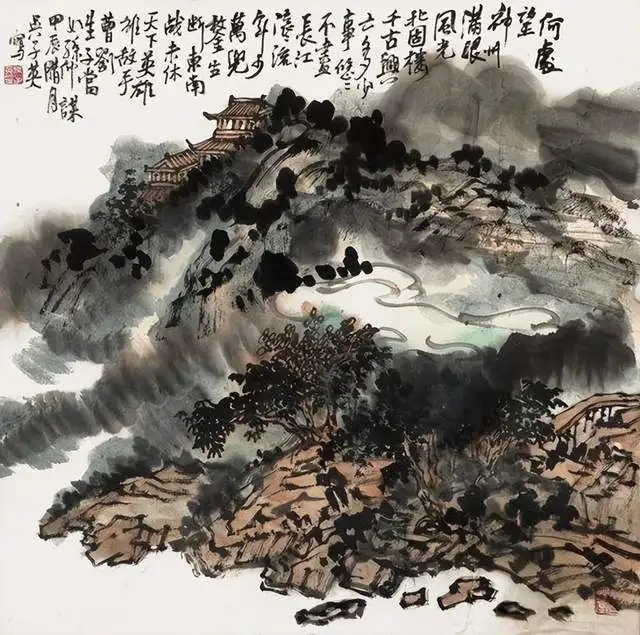 何處
望
神州
滿眼
風光
北固樓
千古興
亡多少
事悠〻
不盡
長江
滾流
年少
萬兜
鍪坐
斷東南
戰未休
天下英雄
敵手
曹劉
生子當
如孫仲謀
甲辰臘月
吳子英
寫